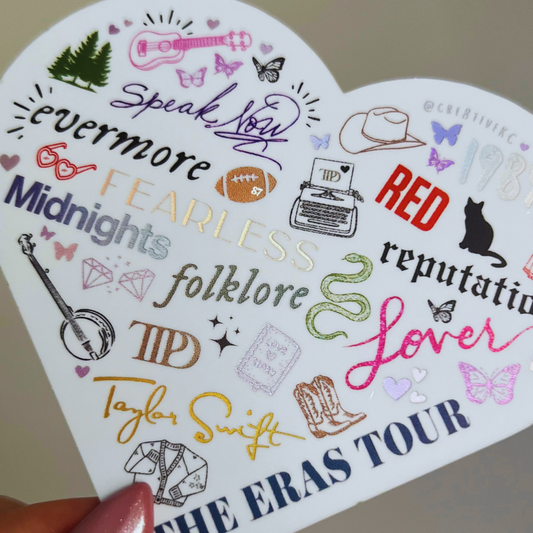 Speak Now
@CRE8TIVEKC
evermore
1989
TTPD
87
FEARLESS
RED
Midnights
reputation
folklore
Lover
TTPD
Taylor Swift
THE ERAS TOUR